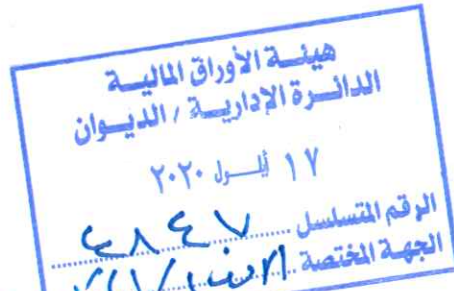 هيئة الأوراق المالية
الدائرة الإدارية / الديوان
١٧ أيلول ٢٠٢٠
الرقم المتسلسل ٤٨٤٧
الجهة المختصة